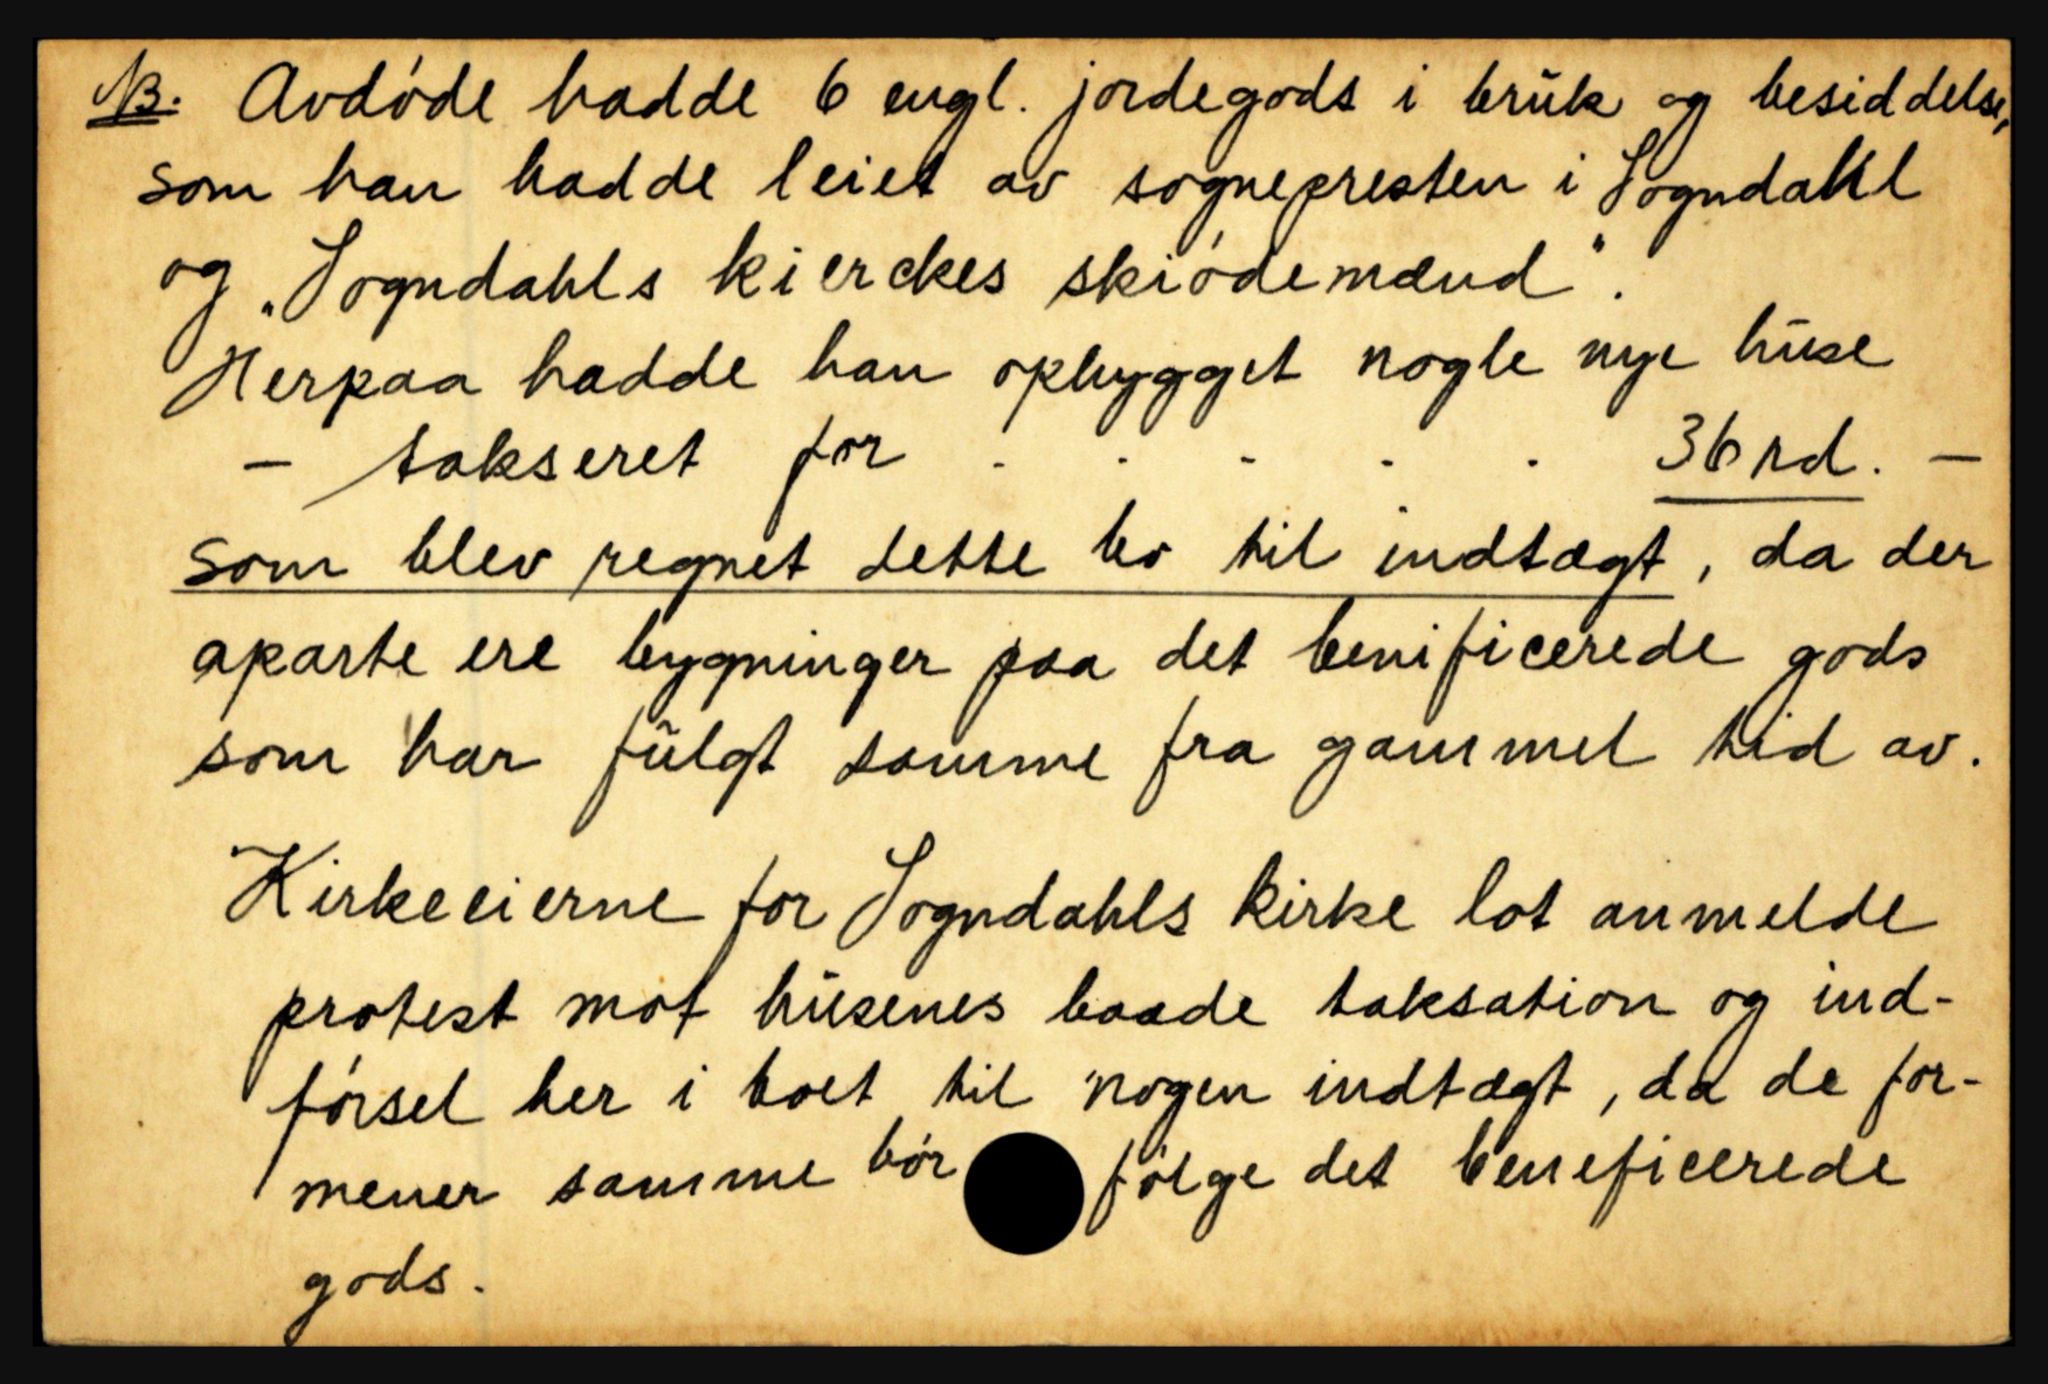 NB. Avdøde hadde 6 engl. jordegods i brūk og besiddelse,
som han hadde leiet av sognepresten i Sogndahl
og „Sogndahls kierckes skiødemænd".
Herpaa hadde han opbygget nogle nye hūse
– takseret for . . . . . 36 rd. –
som blev regnet dette bo til indtægt, da der
aparte ere bygninger paa det benificerede gods
som har fūlgt samme fra gammel tid av.
Kirkeeierne for Sogndahls kirke lot anmelde
protest mot hūsenes baade taksation og ind-
førsel her i boet til nogen indtægt, da de for-
mener samme bør følge det beneficerede
gods.